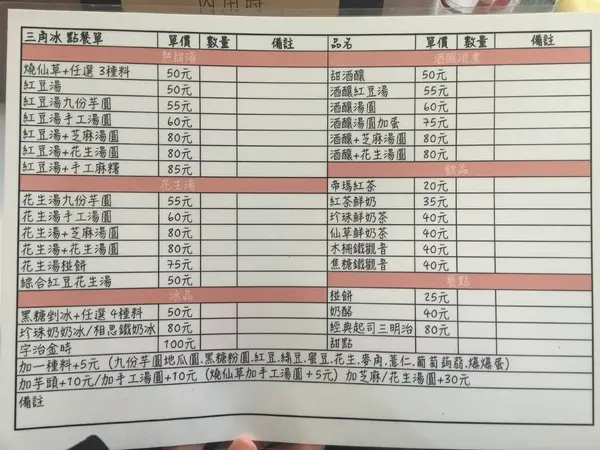 內用時
三角冰 點餐單 單價 數量 備註
熱甜湯
燒仙草+任選 3種料 50元
紅豆湯 50元
紅豆湯九份芋圓 55元
紅豆湯手工湯圓 60元
紅豆湯+芝麻湯圓 80元
紅豆湯+花生湯圓 80元
紅豆湯+手工麻糬 85元
花生湯
花生湯九份芋圓 55元
花生湯手工湯圓 60元
花生湯+芝麻湯圓 80元
花生湯+花生湯圓 80元
花生湯椪餅 75元
綜合紅豆花生湯 50元
冰品
黑糖剉冰+任選 4種料 50元
珍珠奶奶冰/相思鐵奶冰 80元
宇治金時 100元
品名 單價 數量 備註
酒釀項東
甜酒釀 50元
酒釀紅豆湯 55元
酒釀湯圓 60元
酒釀湯圓加蛋 75元
酒釀+芝麻湯圓 80元
酒釀+花生湯圓 80元
飲品
帝瑪紅茶 20元
紅茶鮮奶 35元
珍珠鮮奶茶 40元
仙草鮮奶茶 40元
木柵鐵觀音 40元
焦糖鐵觀音 40元
餐點
椪餅 25元
奶酪 40元
經典起司三明治 80元
甜點
加一種料+5元 (九份芋圓地瓜圓.黑糖粉圓.紅豆.綠豆.蜜豆.花生.麥角.薏仁.葡萄蒟蒻.爆爆蛋)
加芋頭+10元/加手工湯圓+10元 (燒仙草加手工湯圓+5元) 加芝麻/花生湯圓+30元
備註